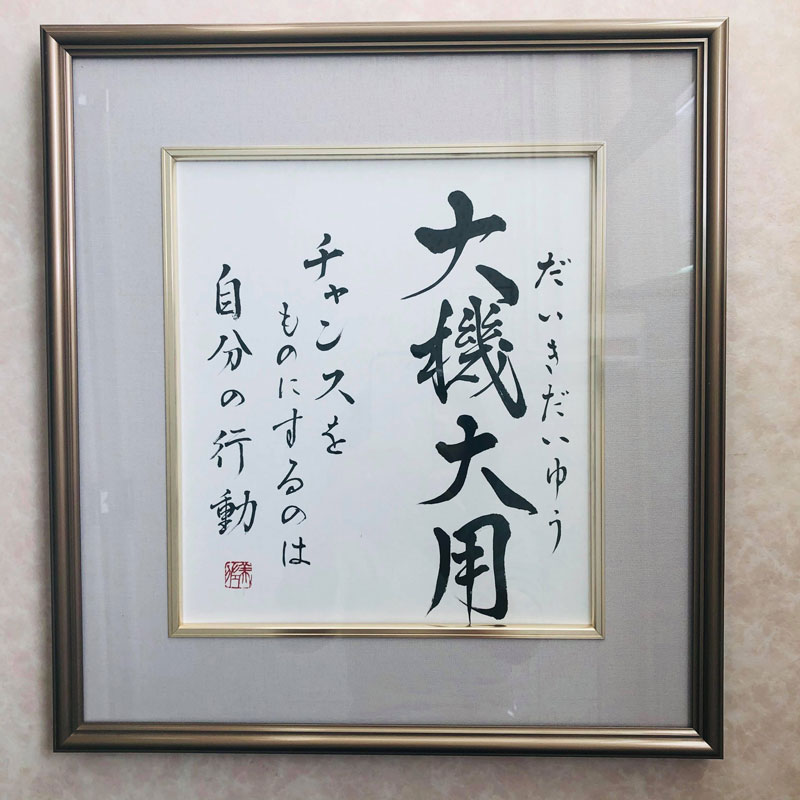 だいきだいゆう
大機大用
チャンスを
ものにするのは
自分の行動